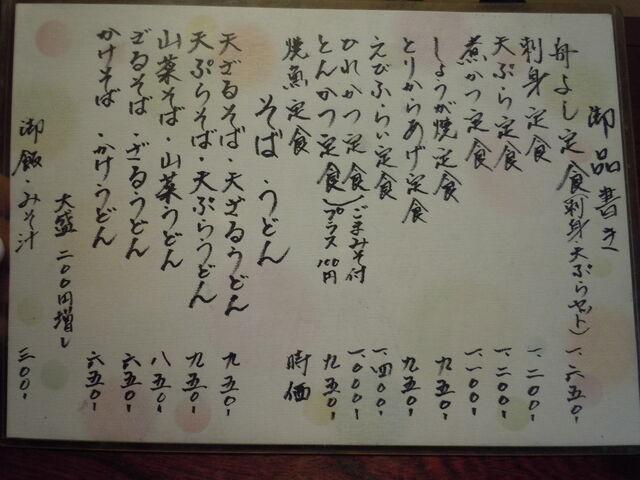 御品書き
舟よし定食(刺身・天ぷらセット) 一、六五〇-
刺身定食 一、二〇〇-
天ぷら定食 一、二〇〇-
煮かつ定食 一、一〇〇-
しょうが焼定食 九五〇-
とりからあげ定食 九五〇-
えびふらい定食 一、四〇〇-
ひれかつ定食 一、〇〇〇-
とんかつ定食 九五〇-
ごまみそ付プラス100円
焼魚定食 時価
そば・うどん
天ざるそば・天ざるうどん 九五〇-
天ぷらそば・天ぷらうどん 九五〇-
山菜そば・山菜うどん 八五〇-
ざるそば・ざるうどん 六五〇-
かけそば・かけうどん 六五〇-
大盛二〇〇円増し
御飯・みそ汁 三〇〇-